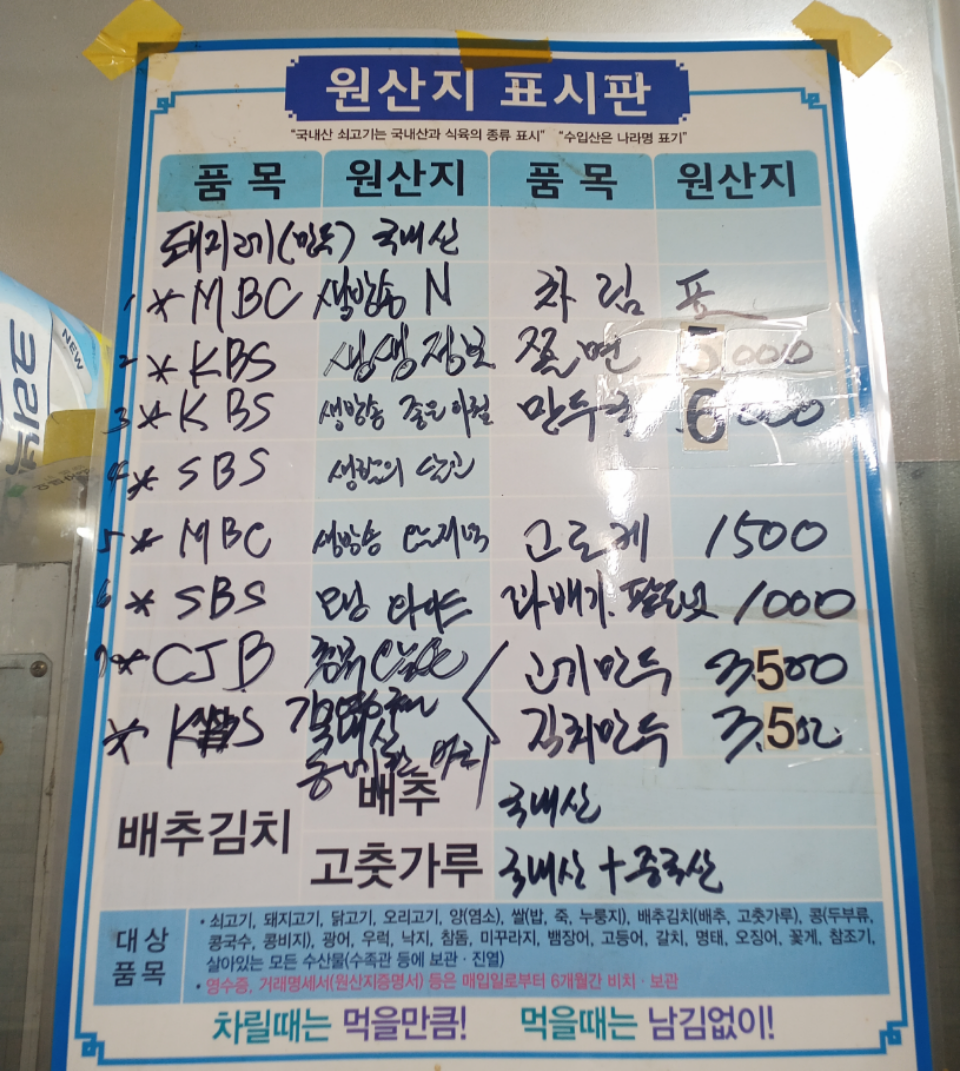 원산지 표시판
"국내산 쇠고기는 국내산과 식육의 종류 표시" "수입산은 나라명 표기"
품 목 원산지 품 목 원산지
돼지 (만두) 국내산
1 * MBC 생방송 N 차림 표
2 * KBS 생생정보 쫄면 5000
3 * KBS 생방송 좋은아침 만두국 6000
4 * SBS 생활의 달인
5 * MBC 생방송 고로케 1500
6 * SBS 모닝 와이드 꽈배기. 팥도넛 1000
7 * CJB 고기만두 3.500
* 김치만두 3.500
배추김치 배추 국내산
고춧가루 국내산 + 중국산
대상 품목
• 쇠고기, 돼지고기, 닭고기, 오리고기, 양(염소), 쌀(밥, 죽, 누룽지), 배추김치(배추, 고춧가루), 콩(두부류,
콩국수, 콩비지), 광어, 우럭, 낙지, 참돔, 미꾸라지, 뱀장어, 고등어, 갈치, 명태, 오징어, 꽃게, 참조기,
살아있는 모든 수산물(수족관 등에 보관 · 진열)
• 영수증, 거래명세서(원산지증명서) 등은 매입일로부터 6개월간 비치 · 보관
차릴때는 먹을만큼! 먹을때는 남김없이!
NEW